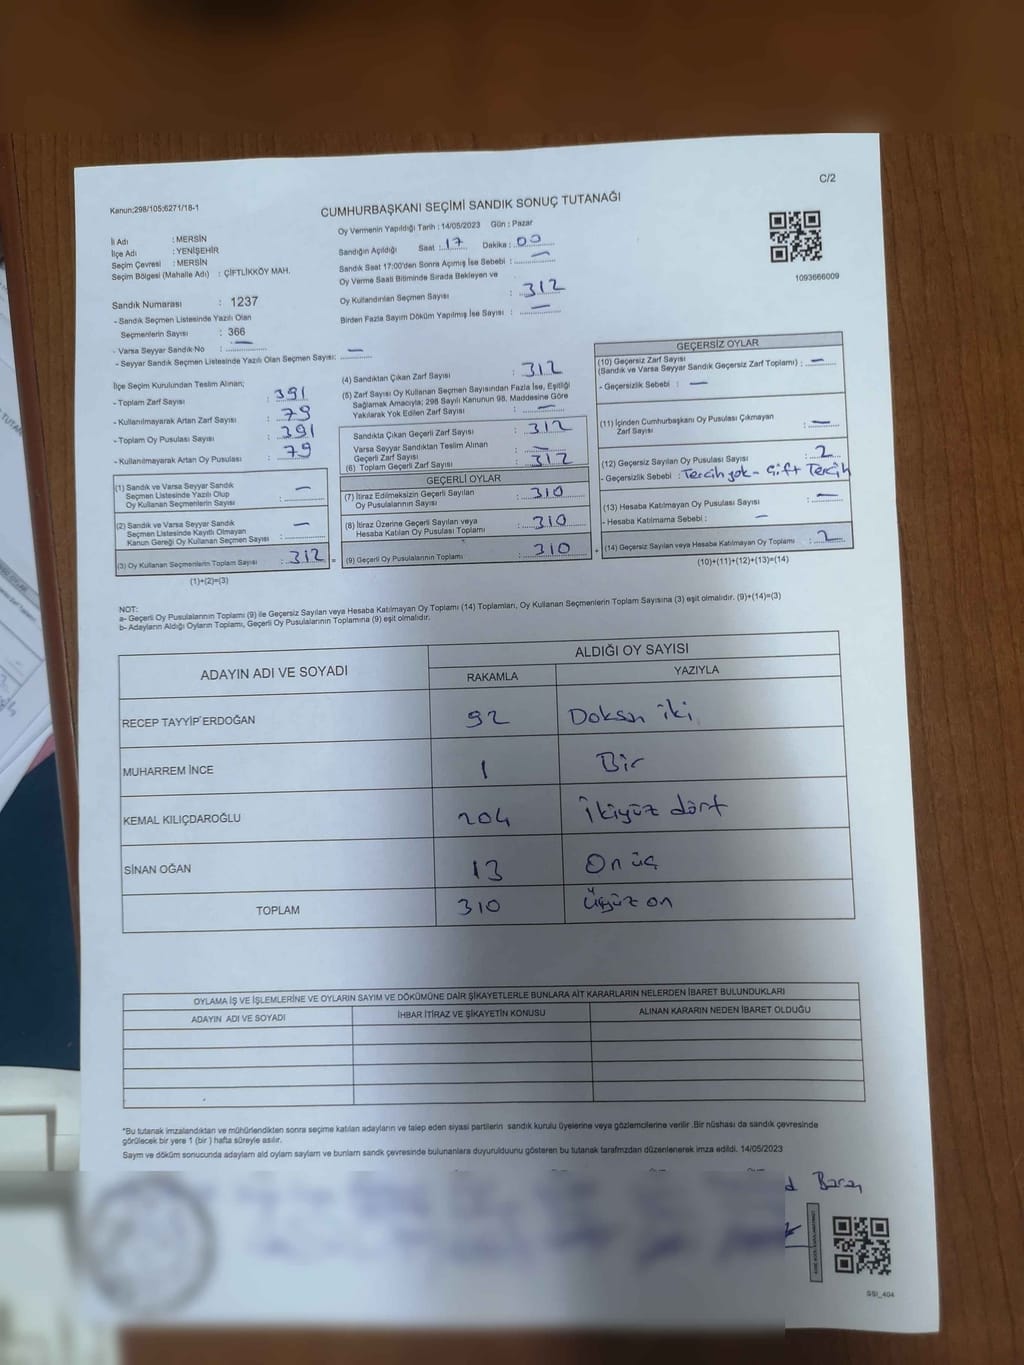 C/2
Kanun;298/105;6271/18-1
CUMHURBAŞKANI SEÇİMİ SANDIK SONUÇ TUTANAĞI
Oy Vermenin Yapıldığı Tarih : 14/05/2023 Gün : Pazar
İl Adı : MERSİN
İlçe Adı : YENİŞEHİR
Seçim Çevresi : MERSİN
Seçim Bölgesi (Mahalle Adı) : ÇİFTLİKKÖY MAH.
Sandığın Açıldığı Saat : 17 Dakika : 00
Sandık Saat 17:00'den Sonra Açımış İse Sebebi : —
Oy Verme Saati Bitiminde Sırada Bekleyen ve
Oy Kullandırılan Seçmen Sayısı : 312
Birden Fazla Sayım Döküm Yapılmış İse Sayısı : —
1093666009
Sandık Numarası : 1237
- Sandık Seçmen Listesinde Yazılı Olan
Seçmenlerin Sayısı : 366
- Varsa Seyyar Sandık No : —
- Seyyar Sandık Seçmen Listesinde Yazılı Olan Seçmen Sayısı: —
İlçe Seçim Kurulundan Teslim Alınan;
- Toplam Zarf Sayısı : 391
- Kullanılmayarak Artan Zarf Sayısı : 79
- Toplam Oy Pusulası Sayısı : 391
- Kullanılmayarak Artan Oy Pusulası : 79
(1) Sandık ve Varsa Seyyar Sandık
Seçmen Listesinde Yazılı Olup
Oy Kullanan Seçmenlerin Sayısı : —
(2) Sandık ve Varsa Seyyar Sandık
Seçmen Listesinde Kayıtlı Olmayan
Kanun Gereği Oy Kullanan Seçmen Sayısı : —
(3) Oy Kullanan Seçmenlerin Toplam Sayısı : 312 =
(1)+(2)=(3)
(4) Sandıktan Çıkan Zarf Sayısı : 312
(5) Zarf Sayısı Oy Kullanan Seçmen Sayısından Fazla İse, Eşitliği
Sağlamak Amacıyla; 298 Sayılı Kanunun 98. Maddesine Göre
Yakılarak Yok Edilen Zarf Sayısı : —
Sandıkta Çıkan Geçerli Zarf Sayısı : 312
Varsa Seyyar Sandıktan Teslim Alınan
Geçerli Zarf Sayısı : —
(6) Toplam Geçerli Zarf Sayısı : 312
GEÇERLİ OYLAR
(7) İtiraz Edilmeksizin Geçerli Sayılan
Oy Pusulasının Sayısı : 310
(8) İtiraz Üzerine Geçerli Sayılan veya
Hesaba Katılan Oy Pusulası Toplamı : 310
(9) Geçerli Oy Pusulalarının Toplamı : 310 +
GEÇERSİZ OYLAR
(10) Geçersiz Zarf Sayısı
(Sandık ve Varsa Seyyar Sandık Geçersiz Zarf Toplamı) : —
- Geçersizlik Sebebi : —
(11) İçinden Cumhurbaşkanı Oy Pusulası Çıkmayan
Zarf Sayısı : —
(12) Geçersiz Sayılan Oy Pusulası Sayısı : 2
- Geçersizlik Sebebi : Tercih yok - Çift Tercih
(13) Hesaba Katılmayan Oy Pusulası Sayısı : —
- Hesaba Katılmama Sebebi : —
(14) Geçersiz Sayılan veya Hesaba Katılmayan Oy Toplamı : 2
(10)+(11)+(12)+(13)=(14)
NOT:
a- Geçerli Oy Pusulalarının Toplamı (9) ile Geçersiz Sayılan veya Hesaba Katılmayan Oy Toplamı (14) Toplamları, Oy Kullanan Seçmenlerin Toplam Sayısına (3) eşit olmalıdır. (9)+(14)=(3)
b- Adayların Aldığı Oyların Toplamı, Geçerli Oy Pusulalarının Toplamına (9) eşit olmalıdır.
ADAYIN ADI VE SOYADI ALDIĞI OY SAYISI
RAKAMLA YAZIYLA
RECEP TAYYİP ERDOĞAN 92 Doksan iki
MUHARREM İNCE 1 Bir
KEMAL KILIÇDAROĞLU 204 İkiyüz dört
SİNAN OĞAN 13 On üç
TOPLAM 310 Üçyüz on
OYLAMA İŞ VE İŞLEMLERİNE VE OYLARIN SAYIM VE DÖKÜMÜNE DAİR ŞİKAYETLERLE BUNLARA AİT KARARLARIN NELERDEN İBARET BULUNDUKLARI
ADAYIN ADI VE SOYADI İHBAR İTİRAZ VE ŞİKAYETİN KONUSU ALINAN KARARIN NEDEN İBARET OLDUĞU
*Bu tutanak imzalandıktan ve mühürlendikten sonra seçime katılan adayların ve talep eden siyasi partilerin sandık kurulu üyelerine veya gözlemcilerine verilir .Bir nüshası da sandık çevresinde
görülecek bir yere 1 (bir ) hafta süreyle asılır.
Sayım ve döküm sonucunda adayların ald oyların sayıları ve bunların sandık çevresinde bulunanlara duyurulduunu gösteren bu tutanak tarafımızdan düzenlenerek imza edildi. 14/05/2023
d Baran
SSI_404